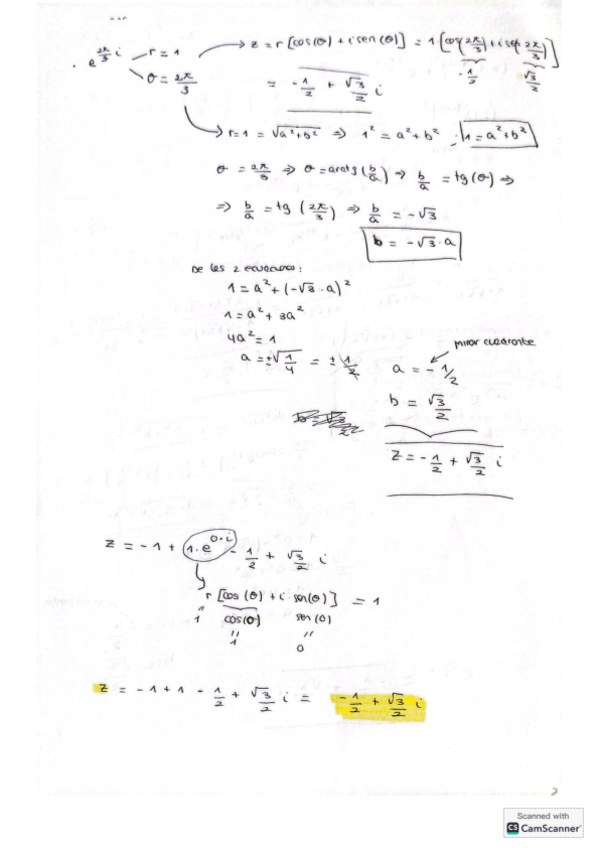 · e^(2π/3 i) r = 1 → z = r [cos(θ) + i sen(θ)] = 1 [cos(2π/3) + i sen(2π/3)]
θ = 2π/3 = -1/2 + √3/2 i -1/2 √3/2
r=1 = √a²+b² ⇒ 1² = a²+b² 1 = a²+b²
θ = 2π/3 ⇒ θ = arctg(b/a) ⇒ b/a = tg(θ) ⇒
⇒ b/a = tg(2π/3) ⇒ b/a = -√3
b = -√3 · a
De las 2 ecuaciones:
1 = a² + (-√3 · a)²
1 = a² + 3a²
4a² = 1
mirar cuadrante
a = ±√1/4 = ± 1/2 a = -1/2
b = √3/2
z = -1/2 + √3/2 i
z = -1 + 1·e^(0·i) - 1/2 + √3/2 i
r [cos(θ) + i sen(θ)] = 1
" cos(0) sen(0)
1 " "
1 0
z = -1 + 1 - 1/2 + √3/2 i = -1/2 + √3/2 i
2
Scanned with
CS CamScanner